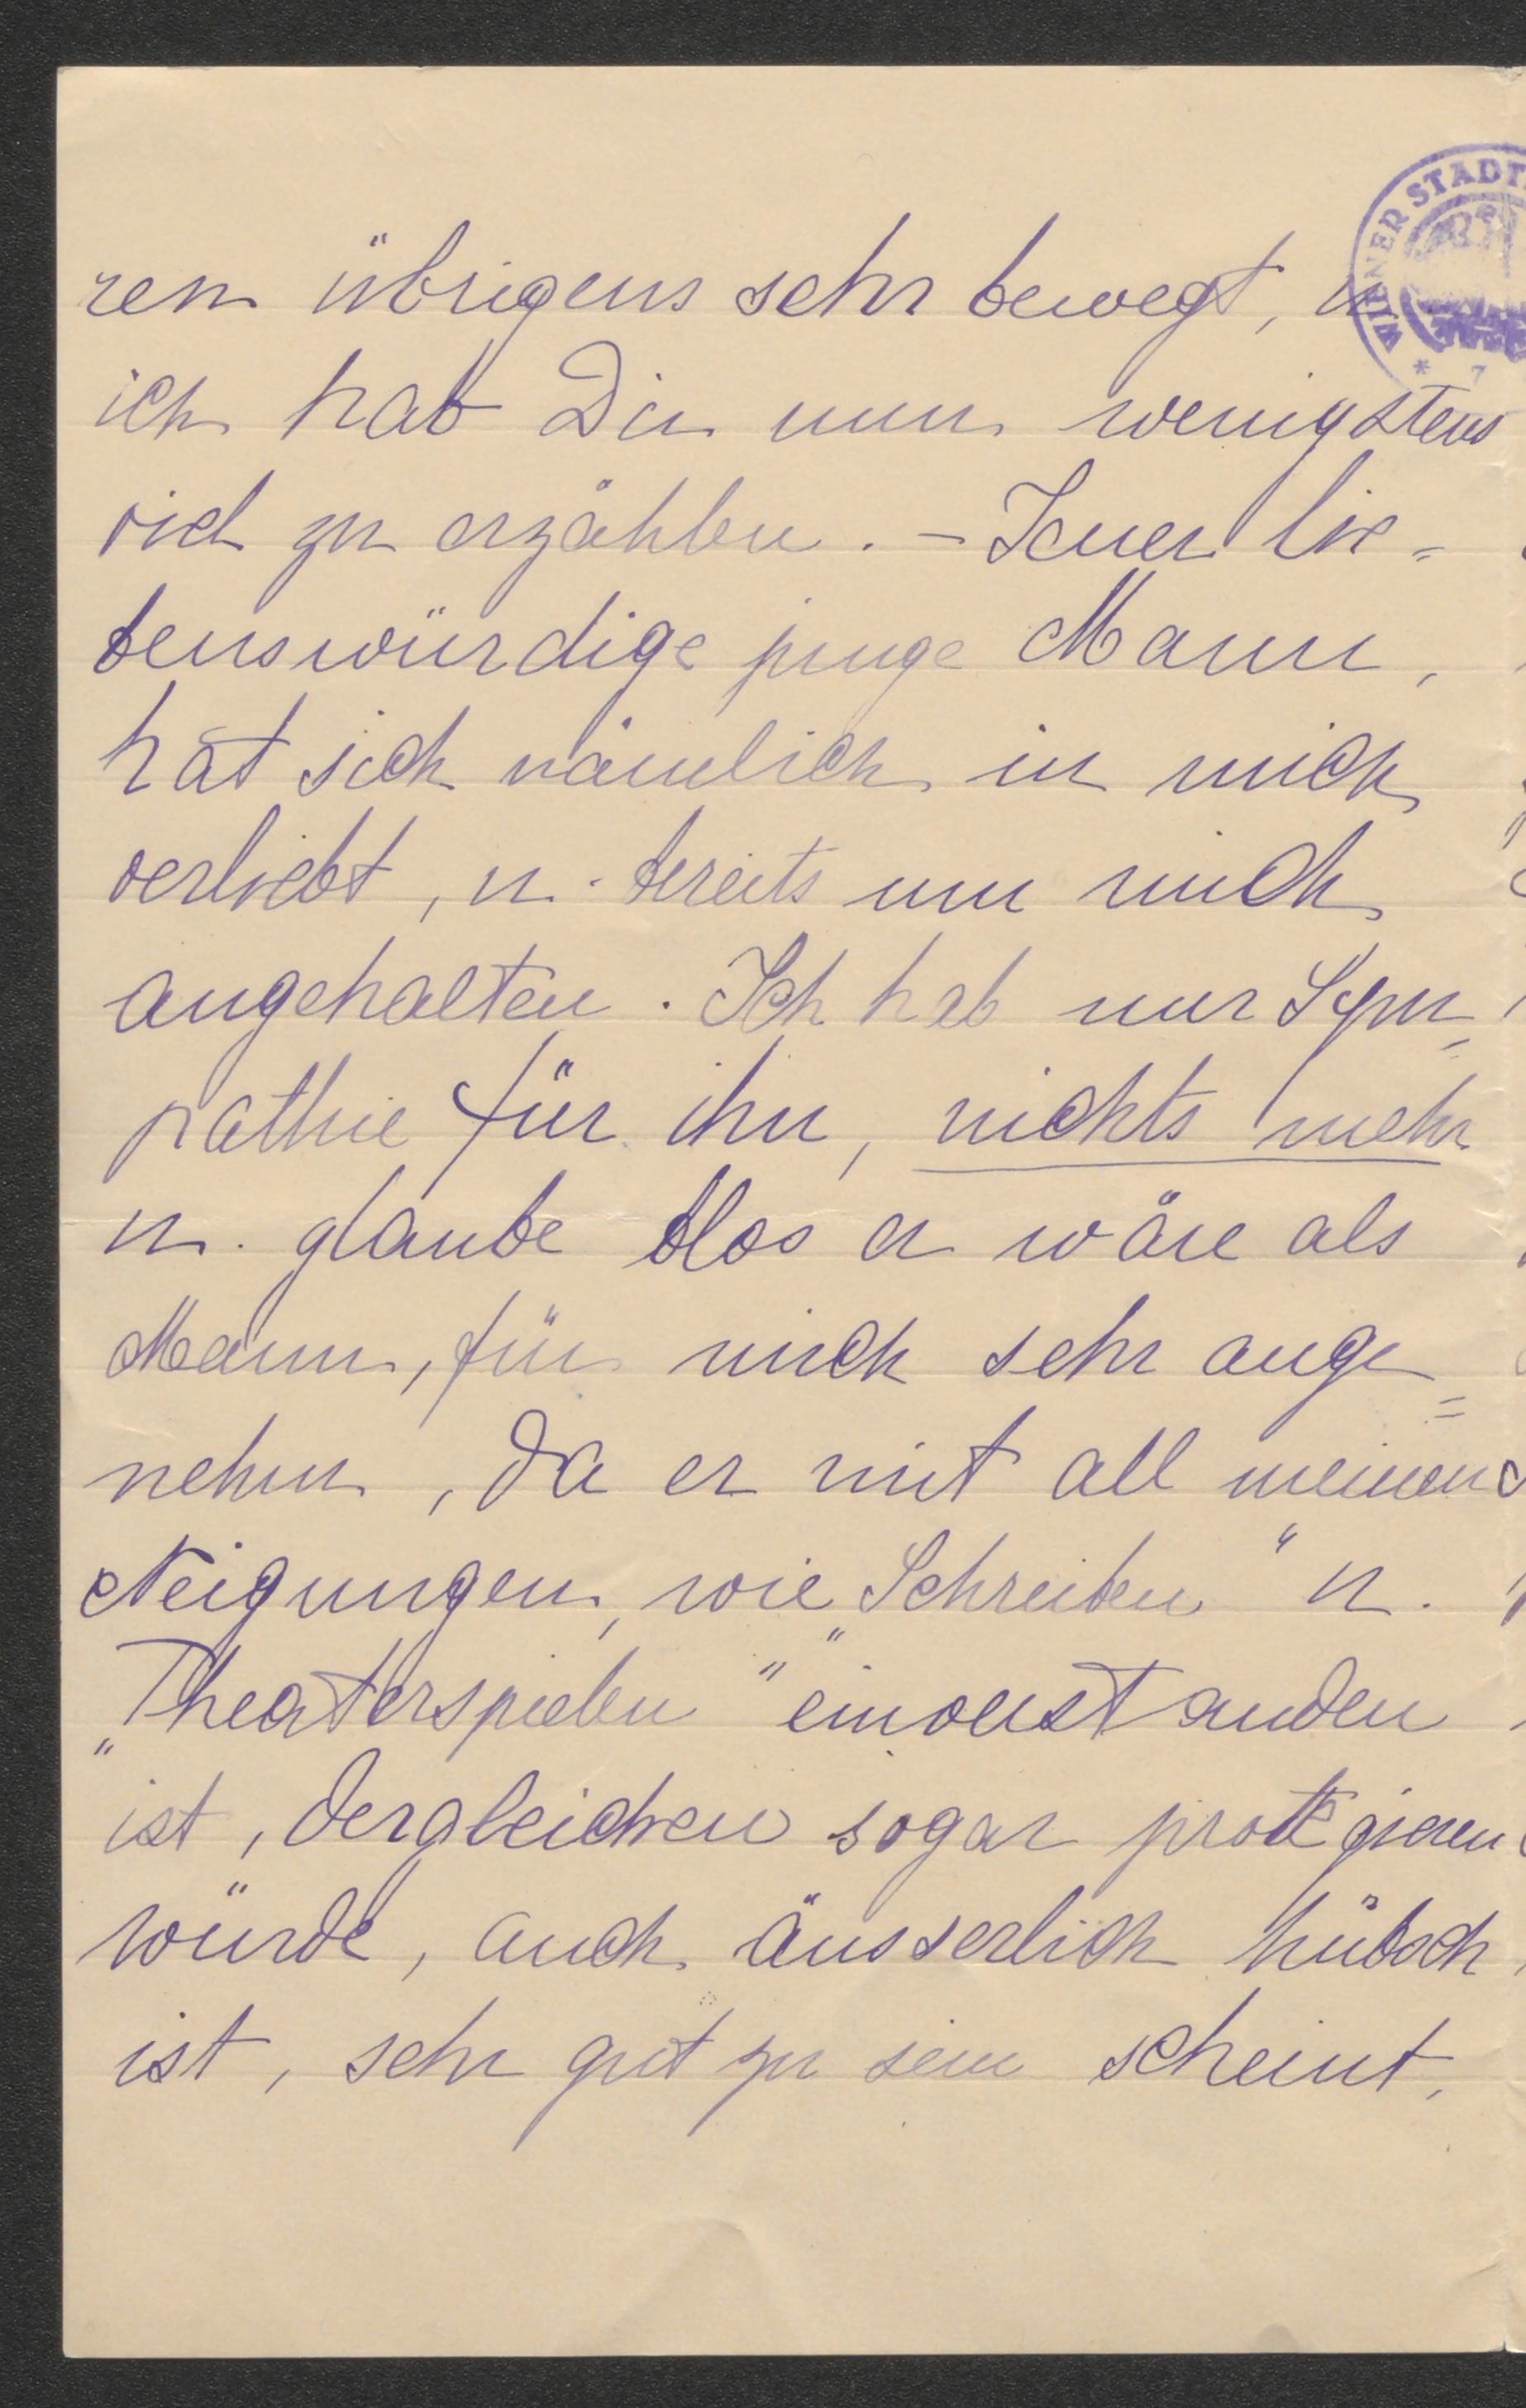 WIENER STADT
ren übrigens sehr bewegt, u
ich hab Dir nun wenigstens
viel zu erzählen. – Jener lie=
benswürdige junge Mann,
hat sich nämlich in mich
verliebt, u. bereits um mich
angehalten. Ich hab nur Sym=
pathie für ihn, nichts mehr
u. glaube blos er wäre als
Mann, für mich sehr ange=
nehm, da er mit all meinen
Neigungen, wie „Schreiben" u.
„Theaterspielen" einverstanden
ist, dergleichen sogar protegieren
würde, auch äusserlich hübsch
ist, sehr gut zu sein scheint,